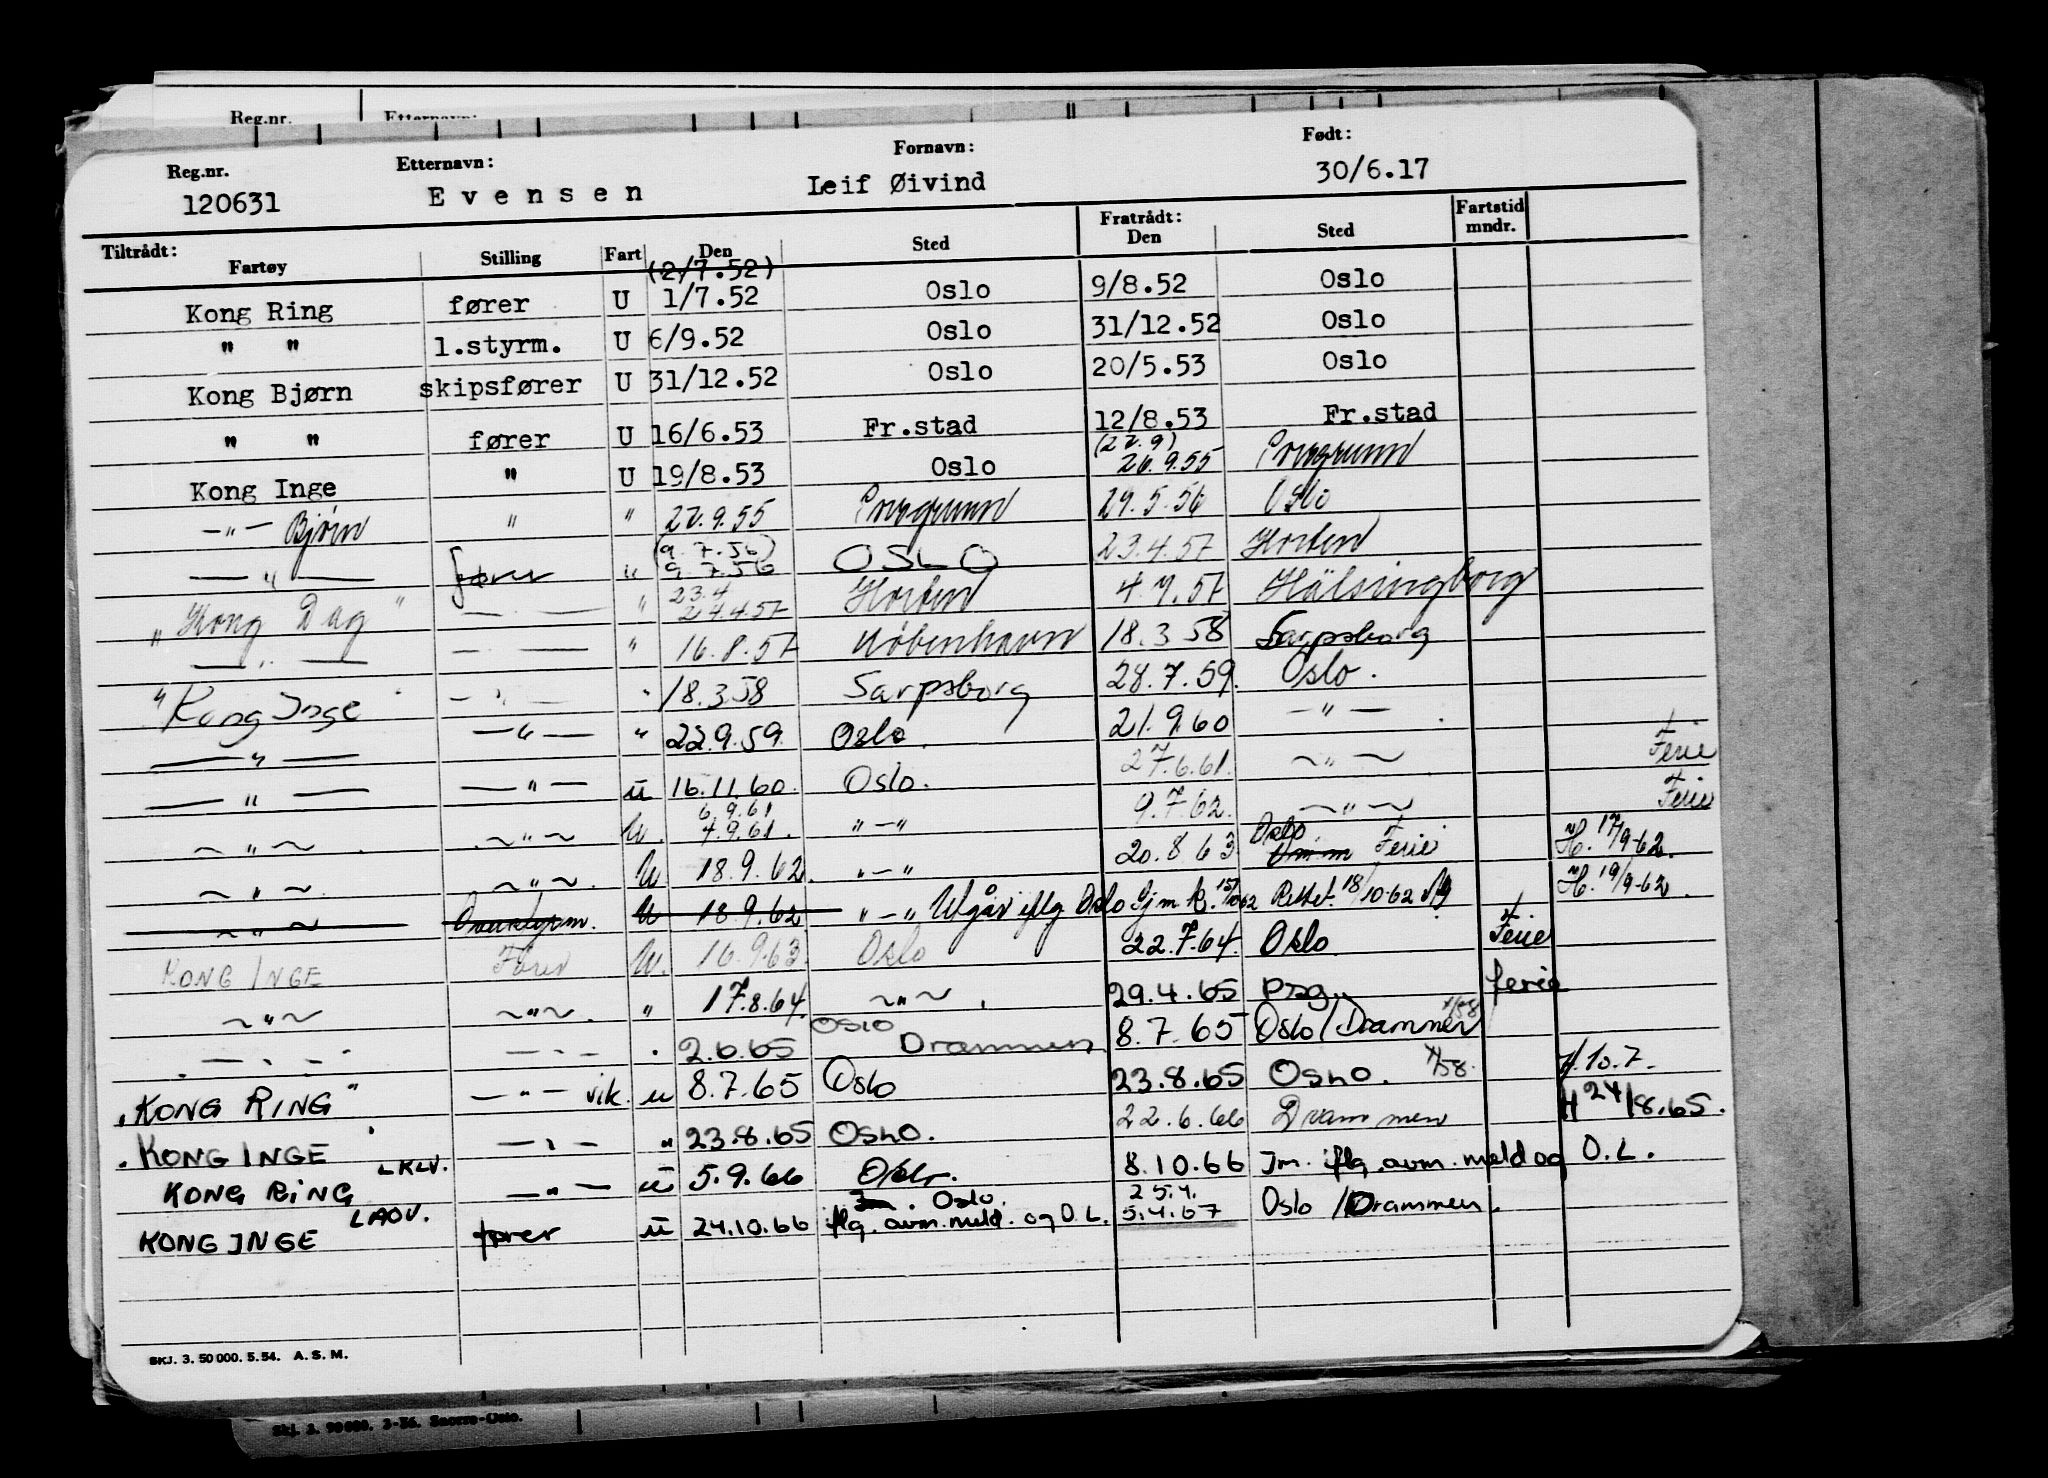 Reg.nr. Etternavn:
Reg.nr. Etternavn: Fornavn: Født:
120631 Evensen Leif Øivind 30/6.17
Tiltrådt: Fratrådt: Fartstid
Fartøy Stilling Fart Den Sted Den Sted mndr.
(2/7.52)
Kong Ring fører U 1/7.52 Oslo 9/8.52 Oslo
" " 1.styrm. U 6/9.52 Oslo 31/12.52 Oslo
Kong Bjørn skipsfører U 31/12.52 Oslo 20/5.53 Oslo
" " fører U 16/6.53 Fr.stad 12/8.53 Fr.stad
(27.9)
Kong Inge " U 19/8.53 Oslo 26.9.55 Porsgrunn
—"— Bjørn " " 27.9.55 Porsgrunn 29.5.56 Oslo
(9.7.56)
—"— fører " 9.7.56 OSLO 23.4.57 Horten
23.4
"Kong Dag" —"— " 24.4.57 Horten 4.7.57 Hälsingborg
—"— —"— " 16.8.57 København 18.3.58 Sarpsborg
"Kong Inge" —"— " 18.3.58 Sarpsborg 28.7.59. Oslo.
—"— —"— " 22.9.59. Oslo. 21.9.60 —"—
—"— —"— u 16.11.60. Oslo. 27.6.61. —"— Ferie
6.9.61
—"— —"— U. 4.9.61. "—" 9.7.62. —"— Ferie
—"— —"— U 18.9.62. "—" 20.8.63 Oslo Ferie H. 17/9-62.
—"— Overstyrm. U 18.9.62 "—" Utgår iflg Oslo Sjm k. 15/10 62 Rettet 18/10-62 H. 19/9-62.
KONG INGE Fører U. 16.9.63. Oslo 22.7.64. Oslo. Ferie
—"— —"— " 17.8.64. —"— 29.4.65 Psg. ferie
—"— —"— " 2.6.65 Oslo Drammen 8.7.65 Oslo/Drammen x/58
"KONG RING" —"— vik. u 8.7.65 Oslo 23.8.65 OSLO. x/58. H.10.7.
"KONG INGE" —"— " 23.8.65 OSLO. 22.6.66 Drammen H 24/8.65.
KONG RING LKLV. —"— u 5.9.66 Oslo. 8.10.66 Im. iflg. avm. meld og O.L.
KONG INGE LAOV. fører u 24.10.66 Oslo. iflg. avm. meld. og O.L. 25.4. 5.4.67 Oslo/Drammen.
SKJ. 3. 50 000. 5. 54. A. S. M.
Skj. 3. 90 000. 3-56. Snorre-Oslo.